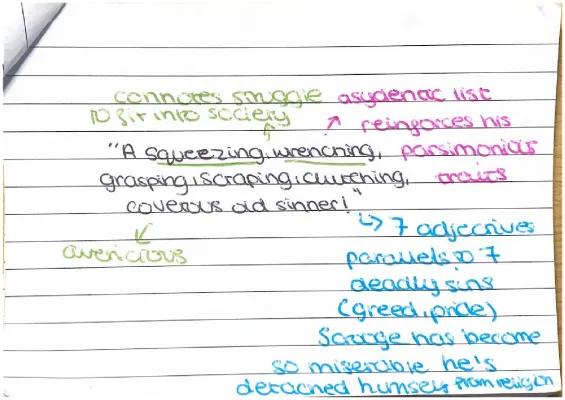 connotes struggle
to fit into society
asydenac list
reinforces his
parsimonious
traits
"A squeezing, wrenching,
grasping, scraping, clutching,
covetous old sinner!"
avericious
7 adjectives
parallels to 7
deadly sins
(greed, pride)
Scrooge has become
so miserable he's
detached himself from religion